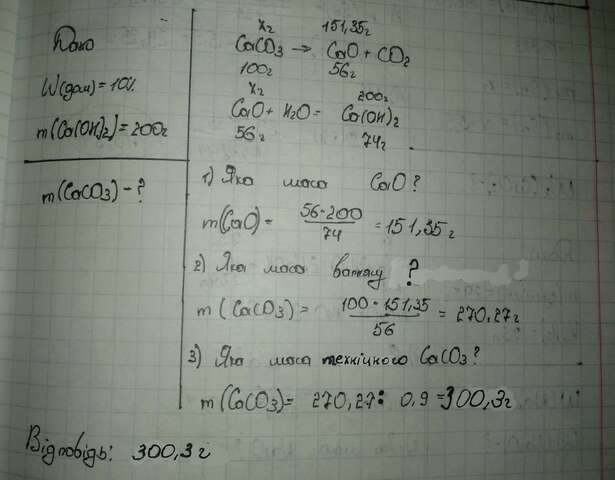 Дано
W(дом) = 10%
m(Ca(OH)2) = 200г
m(CaCO3) - ?
xг 151,35г
CaCO3 → CaO + CO2
100г 56г
xг 200г
CaO + H2O = Ca(OH)2
56г 74г
1) Яка маса CaO?
m(CaO) = 56·200 / 74 = 151,35г
2) Яка маса вапняку ?
m(CaCO3) = 100·151,35 / 56 = 270.27г
3) Яка маса технічного CaCO3?
m(CaCO3) = 270,27 : 0,9 = 300,3г
Відповідь: 300,3г